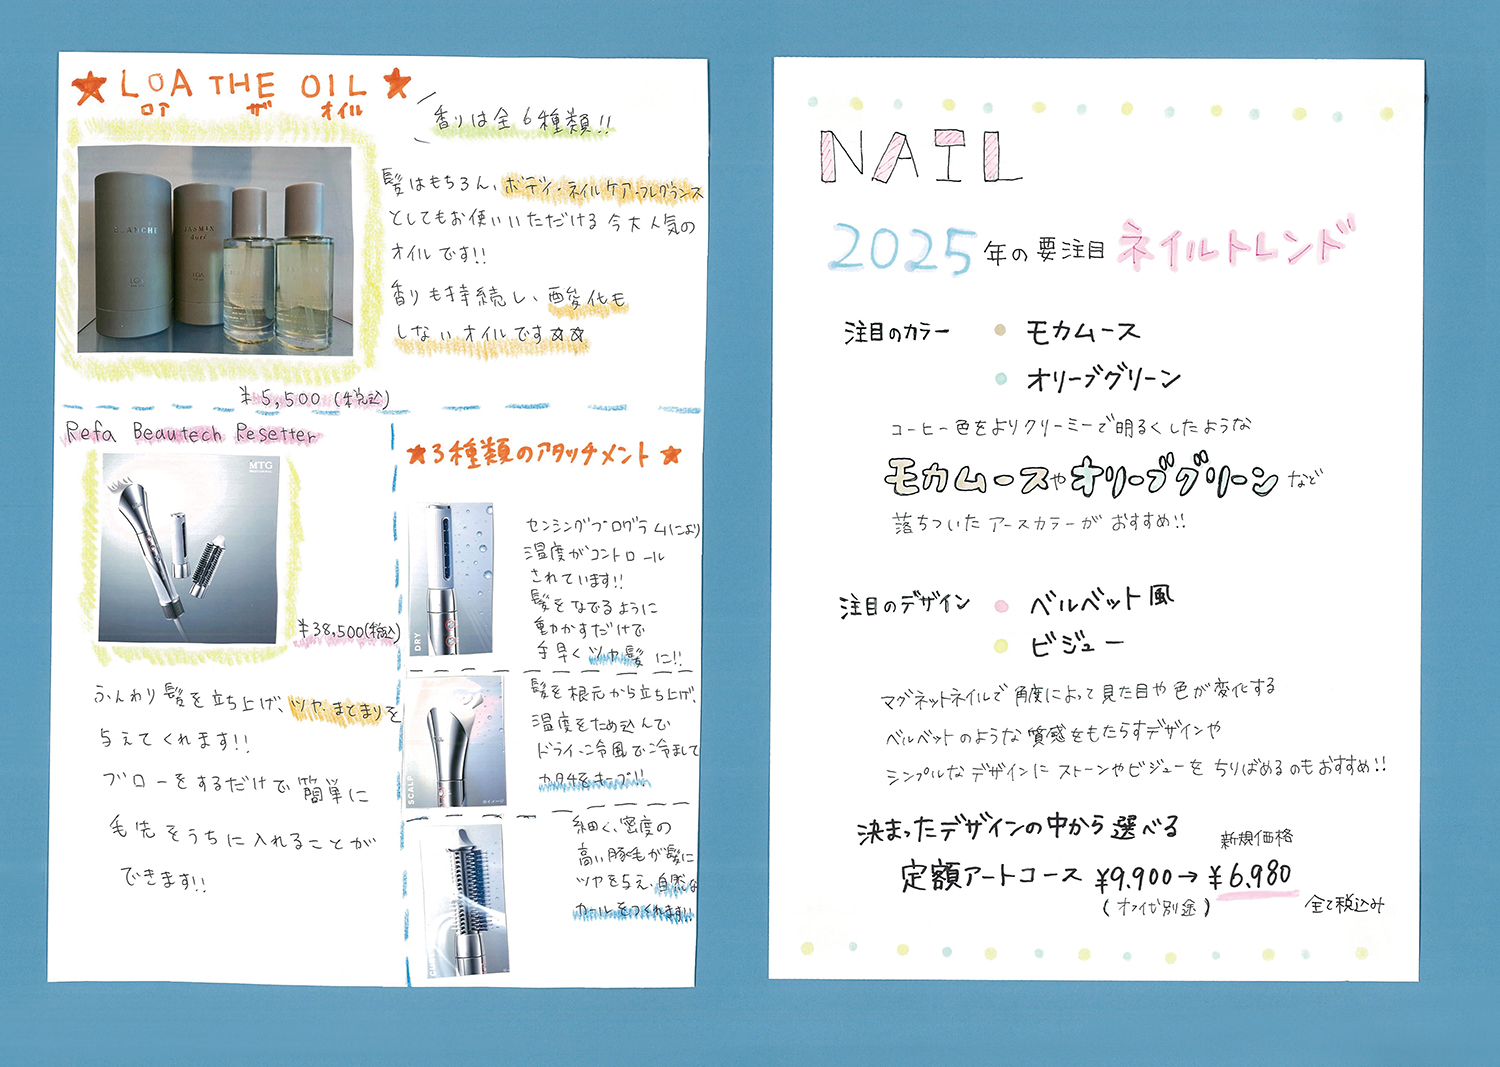 ★LOA THE OIL★
ロア ザ オイル
香りは全6種類!!
BLANCHE
JASMIN
LOA
LOA
髪はもちろん、ボディ・ネイルケア・フレグランス
としてもお使いいただける今大人気の
オイルです!!
香りも持続し、酸化も
しないオイルです☆☆
¥5,500(税込)
Refa Beautech Resetter
MTG
¥38,500(税込)
ふんわり髪を立ち上げ、ツヤ・まとまりを
与えてくれます!!
ブローをするだけで簡単に
毛先をうちに入れることが
できます!!
★3種類のアタッチメント★
DRY
センシングプログラムにより
温度がコントロール
されています!!
髪をなでるように
動かすだけで
手早くツヤ髪に!!
SCALP
髪を根元から立ち上げ、
温度をため込んで
ドライ→冷風で冷まして
カタチをキープ!!
細く、密度の
高い豚毛が髪に
ツヤを与え、自然な
カールをつくれます!!
NAIL
2025年の要注目ネイルトレンド
注目のカラー ● モカムース
● オリーブグリーン
コーヒー色をよりクリーミーで明るくしたような
モカムースやオリーブグリーンなど
落ちついたアースカラーがおすすめ!!
注目のデザイン ● ベルベット風
● ビジュー
マグネットネイルで角度によって見た目や色が変化する
ベルベットのような質感をもたらすデザインや
シンプルなデザインにストーンやビジューをちりばめるのもおすすめ!!
決まったデザインの中から選べる
新規価格
定額アートコース ¥9,900→¥6,980
(オフ代別途)
全て税込み